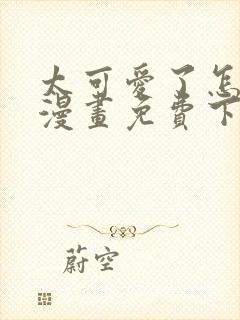 太可愛了怎
漫畫免費下
蔚空